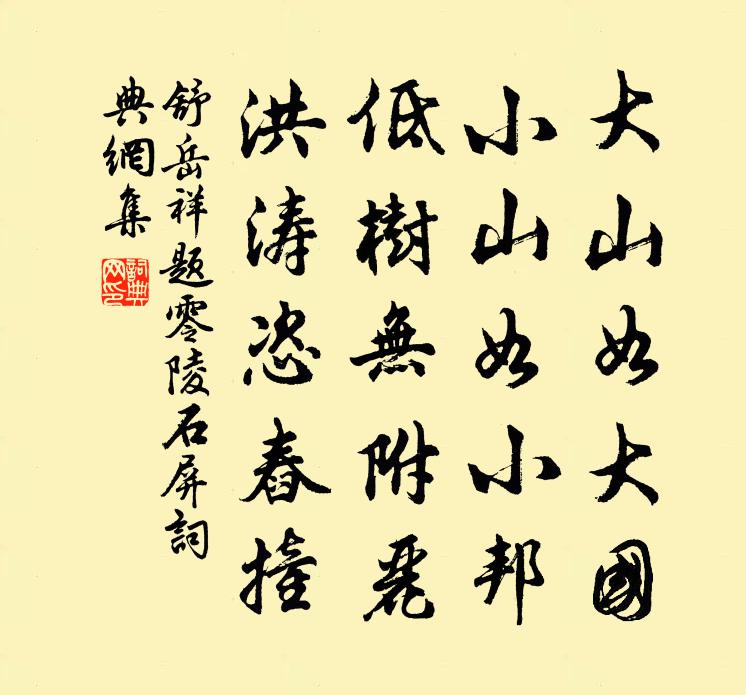 大山如大國
小山如小邦
低樹無附麗
洪濤恣舂撞
舒岳祥題零陵石屏詞
典網集
詞典
网印